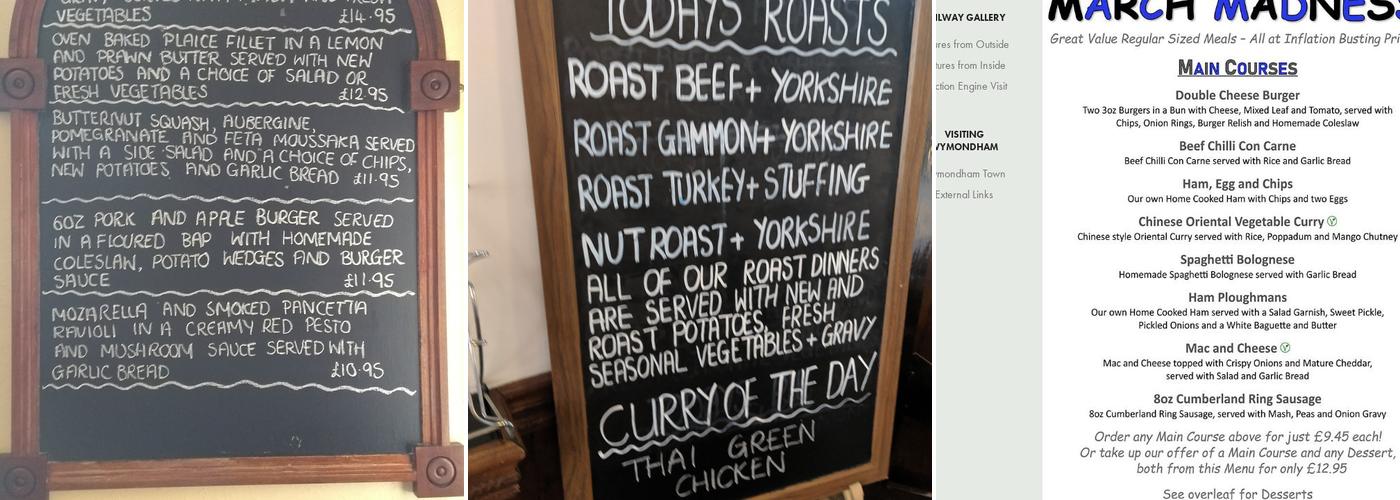 VEGETABLES £14.95
OVEN BAKED PLAICE FILLET IN A LEMON
AND PRAWN BUTTER SERVED WITH NEW
POTATOES AND A CHOICE OF SALAD OR
FRESH VEGETABLES £12.95
BUTTERNUT SQUASH, AUBERGINE,
POMEGRANATE AND FETA MOUSSAKA SERVED
WITH A SIDE SALAD AND A CHOICE OF CHIPS,
NEW POTATOES AND GARLIC BREAD £11.95
6OZ PORK AND APPLE BURGER SERVED
IN A FLOURED BAP WITH HOMEMADE
COLESLAW, POTATO WEDGES AND BURGER
SAUCE £11.95
MOZARELLA AND SMOKED PANCETTA
RAVIOLI IN A CREAMY RED PESTO
AND MUSHROOM SAUCE SERVED WITH
GARLIC BREAD £10.95
TODAYS ROASTS
ROAST BEEF + YORKSHIRE
ROAST GAMMON + YORKSHIRE
ROAST TURKEY + STUFFING
NUT ROAST + YORKSHIRE
ALL OF OUR ROAST DINNERS
ARE SERVED WITH NEW AND
ROAST POTATOES, FRESH
SEASONAL VEGETABLES + GRAVY
CURRY OF THE DAY
THAI GREEN
CHICKEN
ILWAY GALLERY
ures from Outside
tures from Inside
ction Engine Visit
VISITING
WYMONDHAM
ymondham Town
External Links
MARCH MADNESS
Great Value Regular Sized Meals – All at Inflation Busting Pri
MAIN COURSES
Double Cheese Burger
Two 3oz Burgers in a Bun with Cheese, Mixed Leaf and Tomato, served with
Chips, Onion Rings, Burger Relish and Homemade Coleslaw
Beef Chilli Con Carne
Beef Chilli Con Carne served with Rice and Garlic Bread
Ham, Egg and Chips
Our own Home Cooked Ham with Chips and two Eggs
Chinese Oriental Vegetable Curry
Chinese style Oriental Curry served with Rice, Poppadum and Mango Chutney
Spaghetti Bolognese
Homemade Spaghetti Bolognese served with Garlic Bread
Ham Ploughmans
Our own Home Cooked Ham served with a Salad Garnish, Sweet Pickle,
Pickled Onions and a White Baguette and Butter
Mac and Cheese
Mac and Cheese topped with Crispy Onions and Mature Cheddar,
served with Salad and Garlic Bread
8oz Cumberland Ring Sausage
8oz Cumberland Ring Sausage, served with Mash, Peas and Onion Gravy
Order any Main Course above for just £9.45 each!
Or take up our offer of a Main Course and any Dessert,
both from this Menu for only £12.95
See overleaf for Desserts